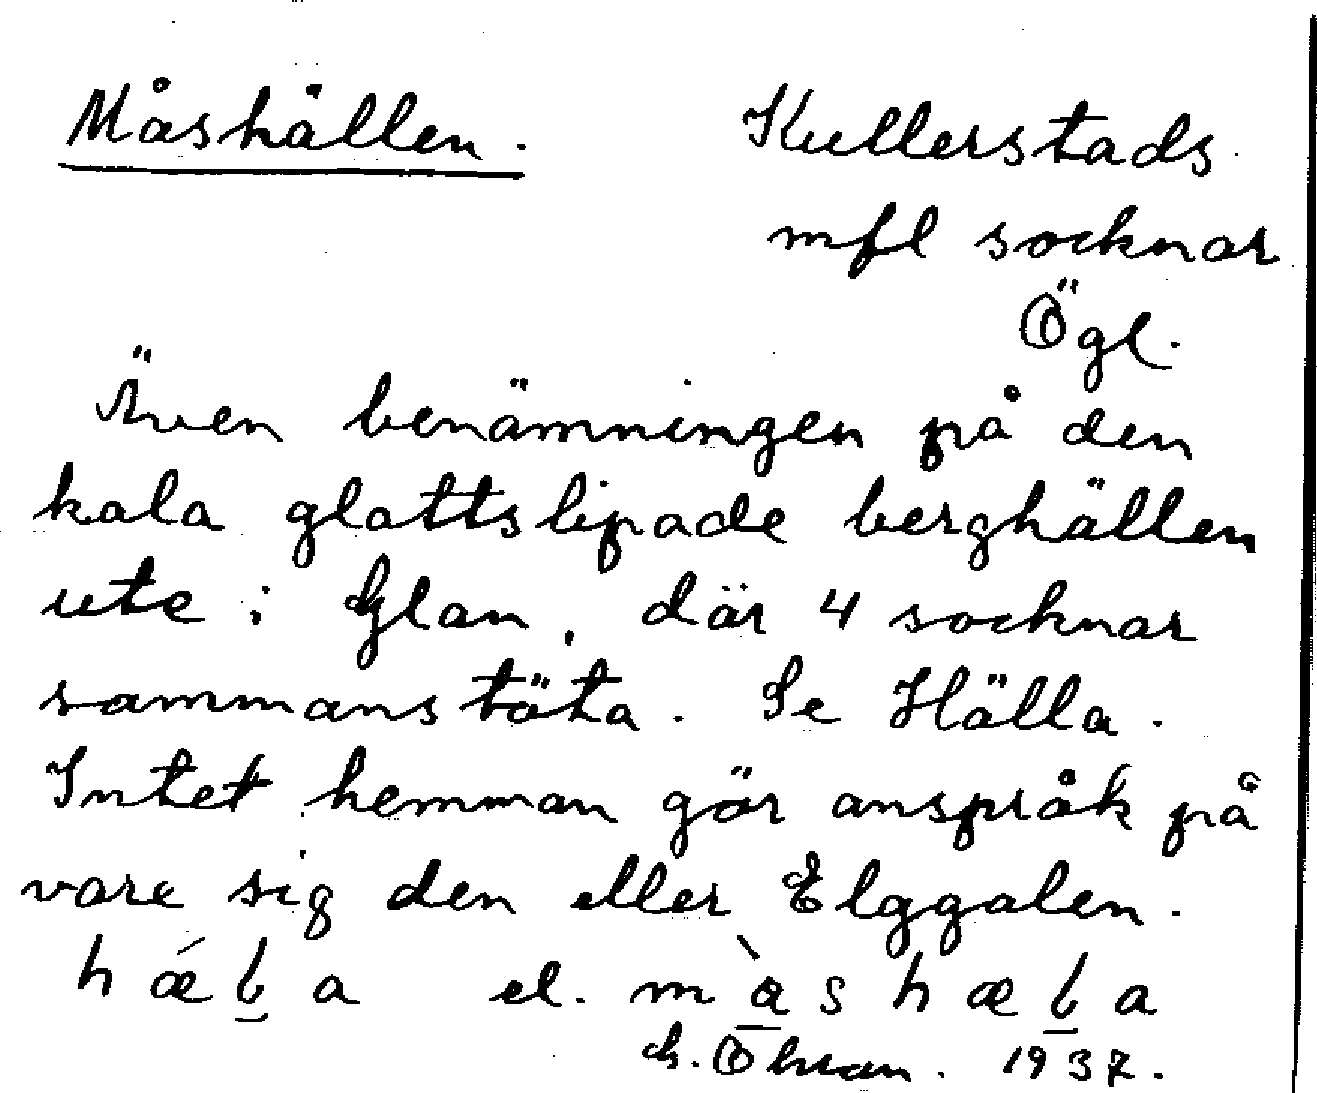 Måshällen.
Kullerstads
mfl socknar
Ögl.
Även benämningen på den
kala glattslipade berghällen
ute i Glan, där 4 socknar
sammanstöta. Se Hälla.
Intet hemman gör anspråk på
vare sig den eller Elggalen.
el.
1937.